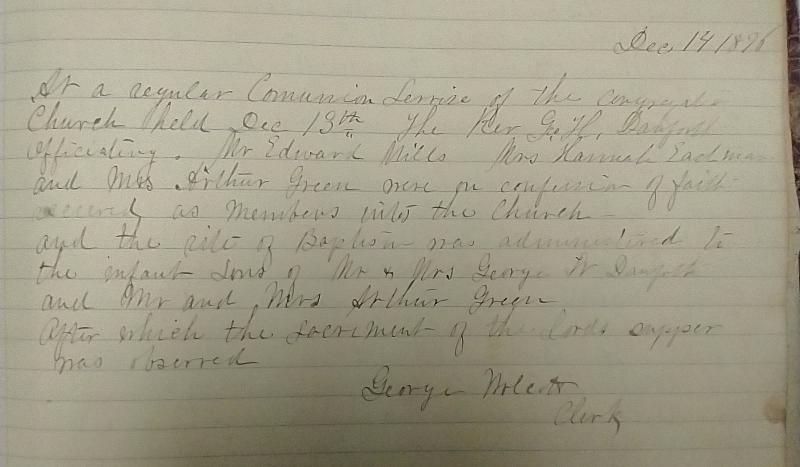 Dec 14 1896
At a regular Comunion Servise of the congregat
Church held Dec 13th The Rev Geo. H. Danforth
officiating. Mr Edward Mills Mrs Hannah
and Mrs Arthur Green were on confession of faith
received as members into the Church
and the rite of Baptism was administered to
the infant sons of Mr & Mrs George W Danforth
and Mr and Mrs Arthur Green
After which the sacrement of the lords supper
was observed
George Wolcott
Clerk